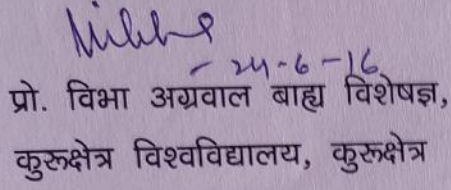 24-6-16
प्रो. विभा अग्रवाल बाह्य विशेषज्ञ,
कुरूक्षेत्र विश्वविद्यालय, कुरूक्षेत्र